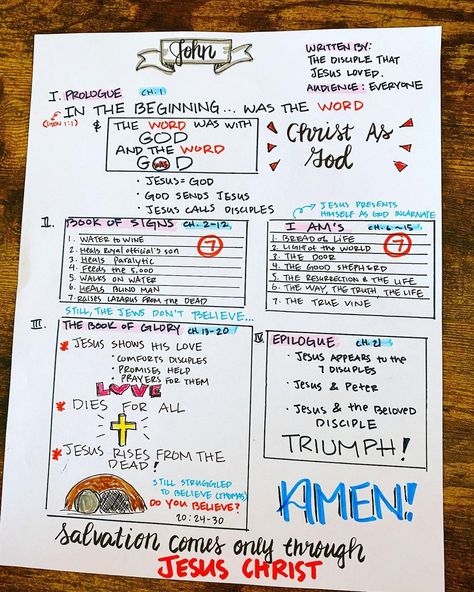 John
WRITTEN BY:
THE DISCIPLE THAT
JESUS LOVED.
AUDIENCE: EVERYONE
I. PROLOGUE CH. 1
IN THE BEGINNING... WAS THE WORD
(GEN 1:1)
& THE WORD WAS WITH
GOD
AND THE WORD
WAS
GOD
Christ As
God
• JESUS = GOD
• GOD SENDS JESUS
• JESUS CALLS DISCIPLES
JESUS PRESENTS
HIMSELF AS GOD INCARNATE
II. BOOK OF SIGNS CH. 2-12
7
1. WATER TO WINE
2. Heals Royal official's son
3. Heals Paralytic
4. Feeds the 5,000
5. WALKS ON WATER
6. HEALS BLIND MAN
7. RAISES LAZARUS FROM THE DEAD
STILL, THE JEWS DON'T BELIEVE...
I AM'S CH. 6-15
7
1. BREAD of LIFE
2. LIGHT of the WORLD
3. THE DOOR
4. THE GOOD SHEPHERD
5. THE RESURRECTION & THE LIFE
6. THE WAY, THE TRUTH THE LIFE
7. THE TRUE VINE
III. THE BOOK OF GLORY CH. 13-20
* JESUS SHOWS HIS LOVE
• COMFORTS DISCIPLES
• PROMISES HELP
• PRAYERS FOR THEM
LOVE
* DIES FOR ALL
* JESUS RISES FROM THE
DEAD!
STILL STRUGGLED
TO BELIEVE (THOMAS)
DO YOU BELIEVE?
20:24-30
IV. EPILOGUE CH. 21
• JESUS APPEARS TO THE
7 DISCIPLES
• JESUS & PETER
• JESUS & the BELOVED
DISCIPLE
TRIUMPH!
AMEN!
Salvation comes only through
JESUS CHRIST